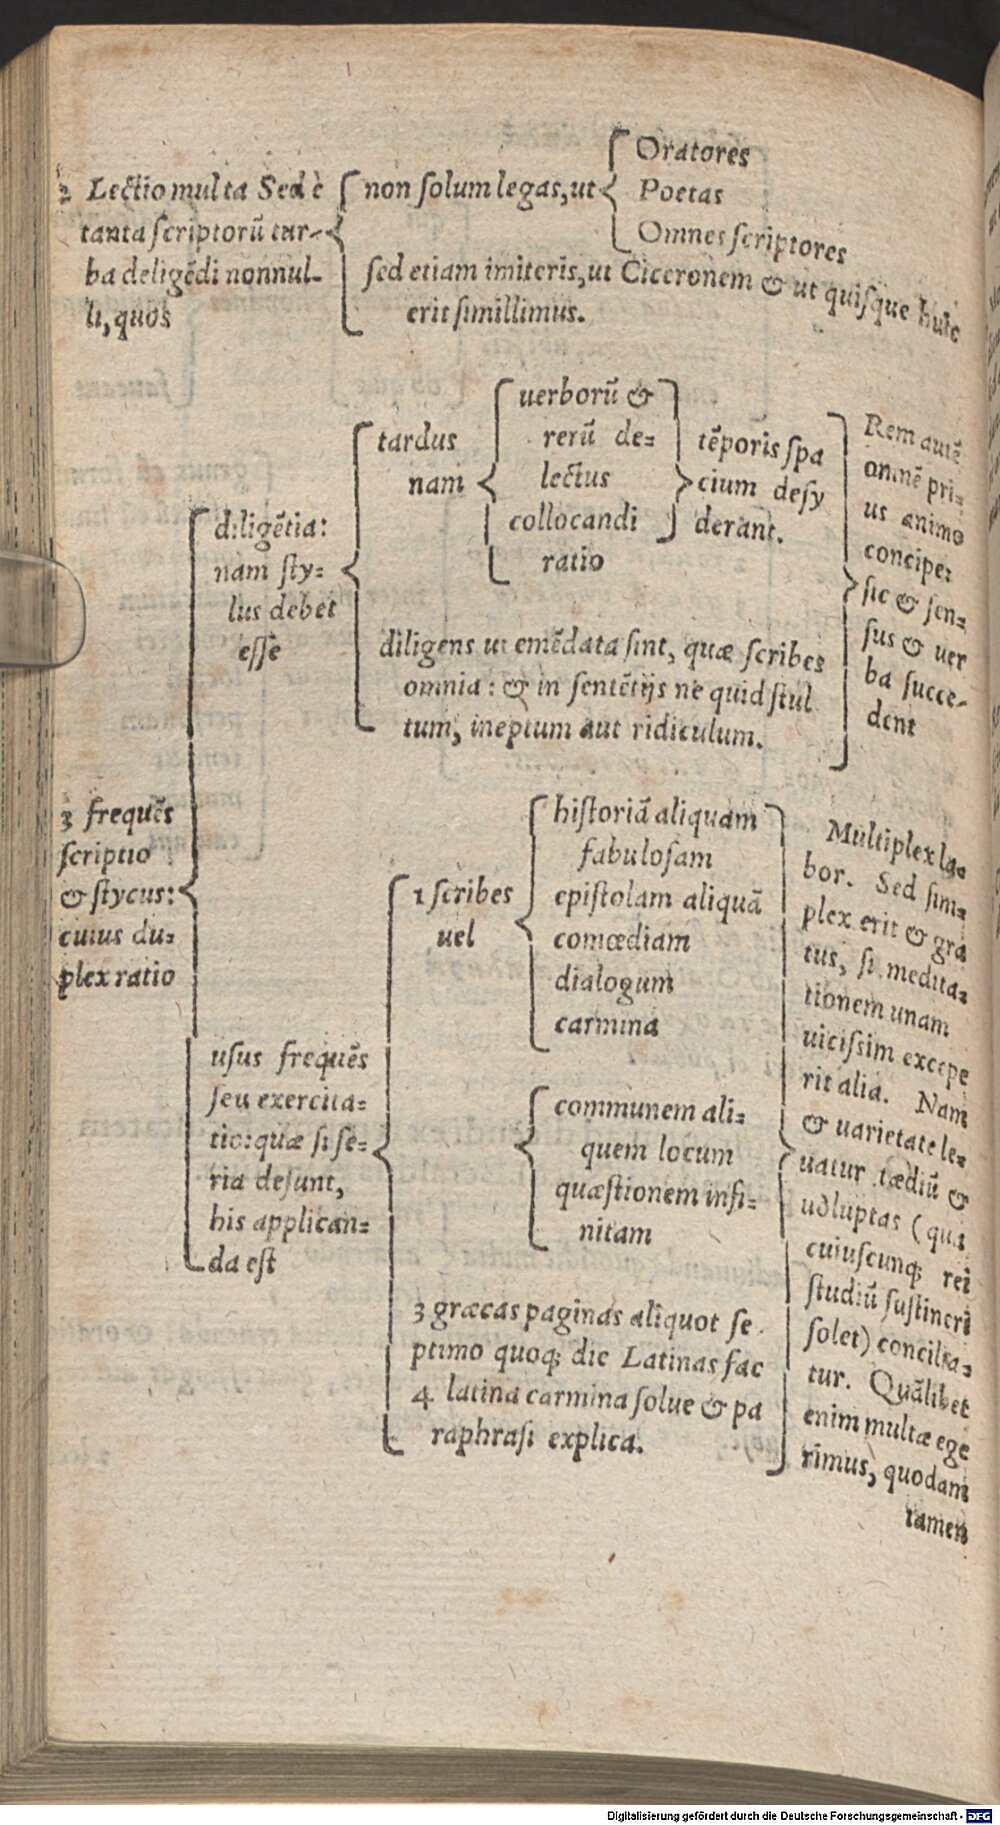 2 Lectio multa Sed è
tanta scriptorū tur-
ba deligēdi nonnul-
li, quos
non solum legas, ut
Oratores
Poetas
Omnes scriptores
sed etiam imiteris, ut Ciceronem & ut quisque huic
erit simillimus.
3 frequēs
scriptio
& stycus:
cuius du=
plex ratio
diligētia:
nam sty=
lus debet
esse
tardus
nam
uerborū &
rerū de=
lectus
collocandi
ratio
tēporis spa
cium desy
derant.
diligens ut emēdata sint, quæ scribes
omnia: & in sentētijs ne quid stul
tum, ineptum aut ridiculum.
Rem autē
omnē pri=
us animo
concipe:
sic & sen=
sus & uer
ba succe-
dent
usus frequēs
seu exercita=
tio: quæ si se=
ria desunt,
his applican=
da est
1 scribes
uel
historiā aliquam
fabulosam
epistolam aliquā
comœdiam
dialogum
carmina
communem ali=
quem locum
quæstionem infi=
nitam
3 græcas paginas aliquot se
ptimo quoq; die Latinas fac
4 latina carmina solue & pa
raphrasi explica.
Multiplex la=
bor. Sed sim=
plex erit & gra
tus, si medita=
tionem unam
uicissim excepe
rit alia. Nam
& uarietate le=
uatur tædiū &
uoluptas (qua
cuiuscunq; rei
studiū sustineri
solet) concilia=
tur. Quālibet
enim multa ege
rimus, quodam
tamen
Digitalisierung gefördert durch die Deutsche Forschungsgemeinschaft - DFG